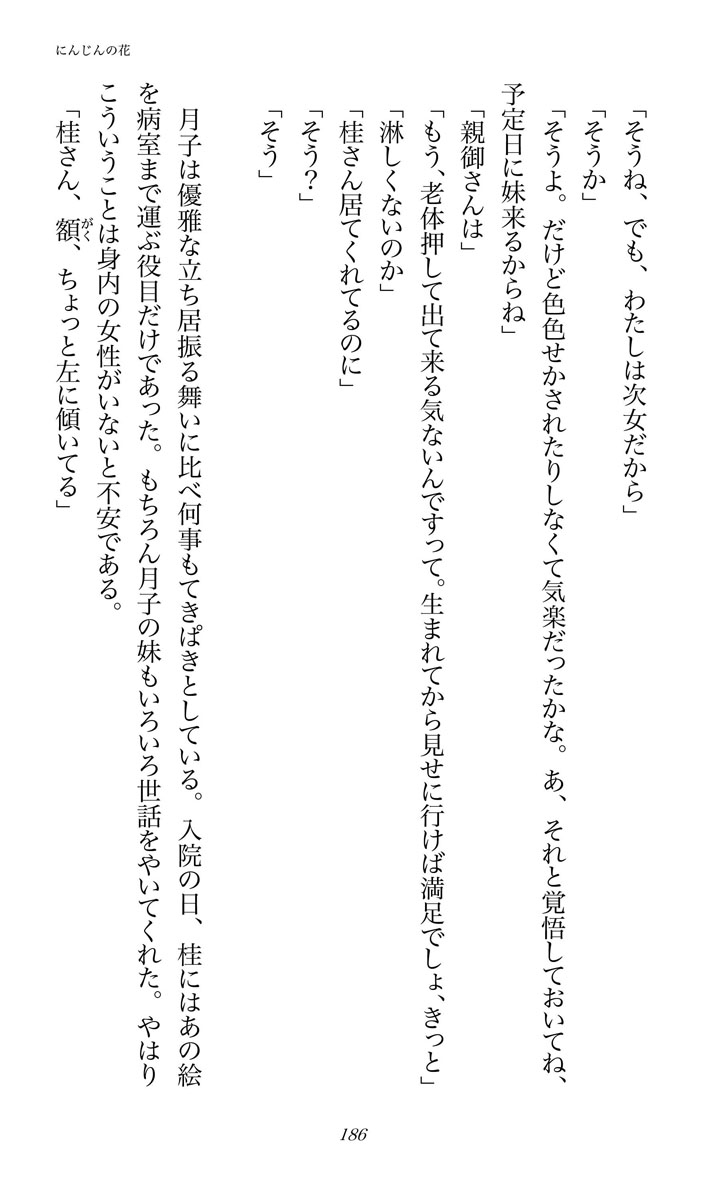 にんじんの花
「そうね、でも、わたしは次女だから」
「そうか」
「そうよ。だけど色色せかされたりしなくて気楽だったかな。あ、それと覚悟しておいてね、
予定日に妹来るからね」
「親御さんは」
「もう、老体押して出て来る気ないんですって。生まれてから見せに行けば満足でしょ、きっと」
「淋しくないのか」
「桂さん居てくれてるのに」
「そう？」
「そう」
月子は優雅な立ち居振る舞いに比べ何事もてきぱきとしている。入院の日、桂にはあの絵
を病室まで運ぶ役目だけであった。もちろん月子の妹もいろいろ世話をやいてくれた。やはり
こういうことは身内の女性がいないと不安である。
「桂さん、額、ちょっと左に傾いてる」
がく
186